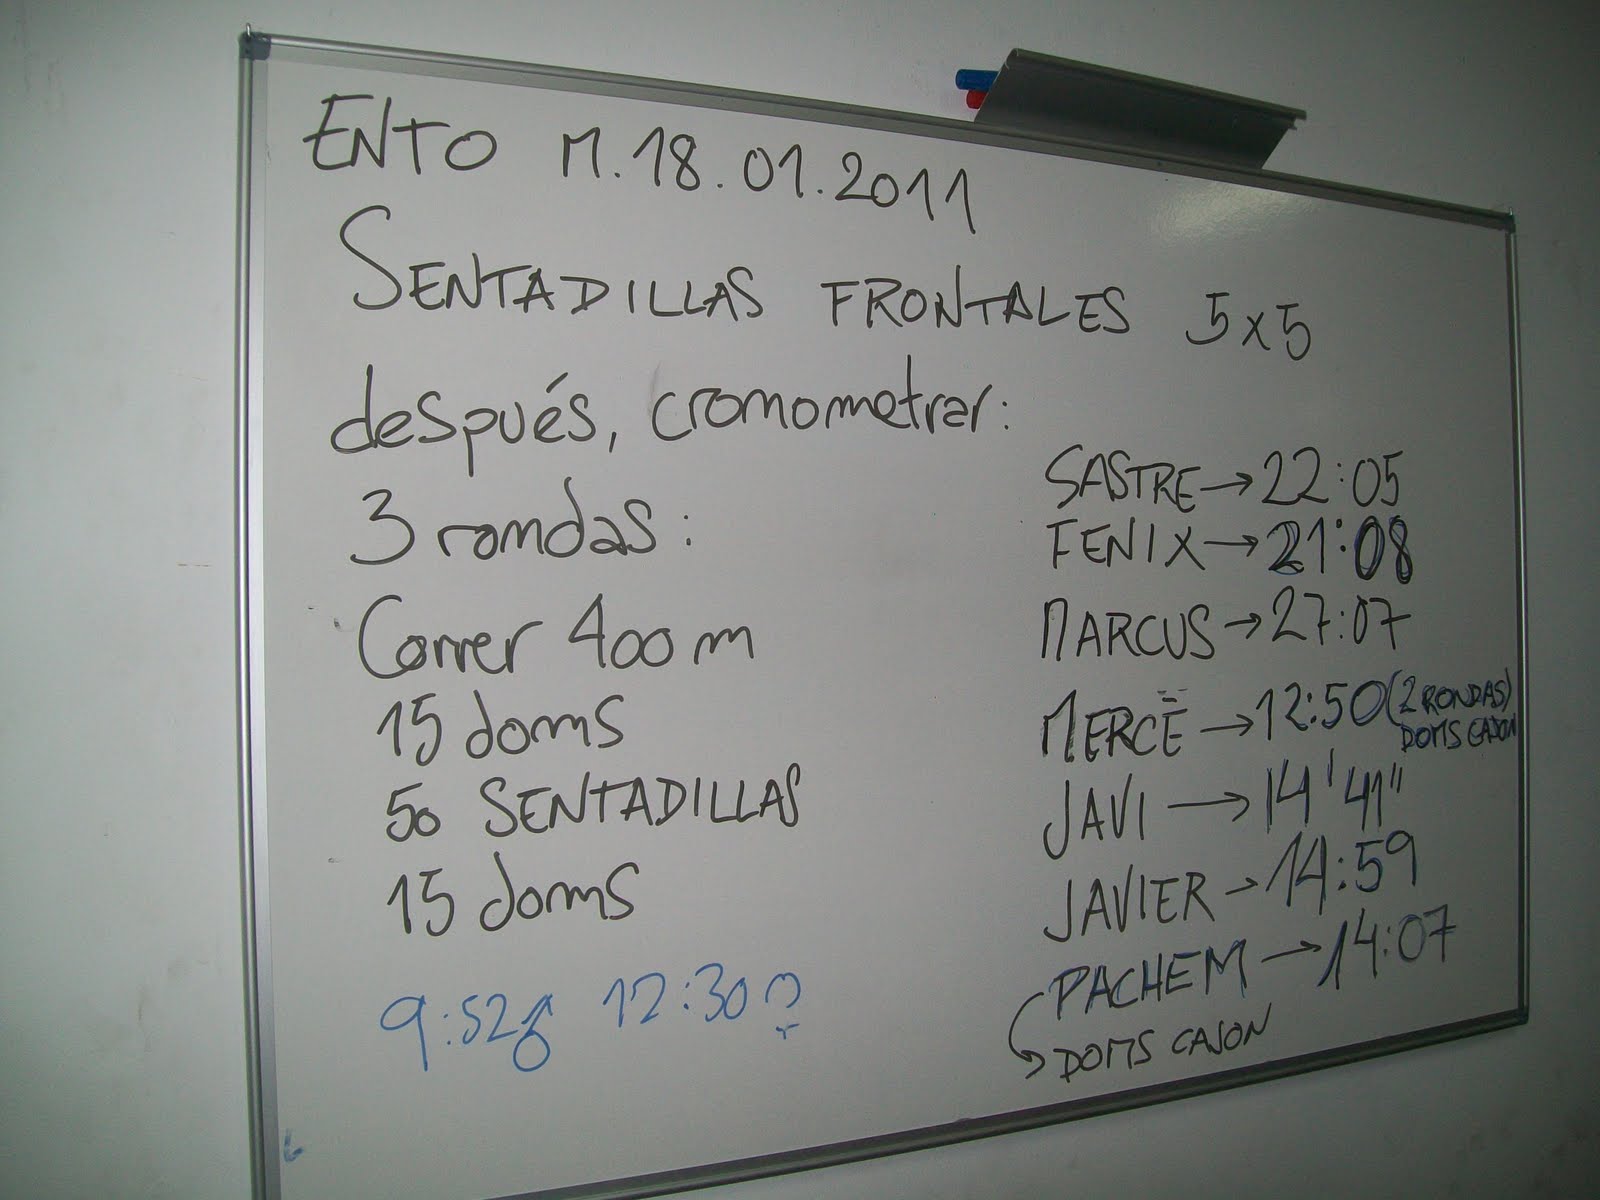 ENTO M.18.01.2011
SENTADILLAS FRONTALES 5x5
después, cromometrar:
3 rondas:
Correr 400 m
15 doms
50 SENTADILLAS
15 doms
9:52♂ 12:30♀
SASTRE → 22:05
FENIX → 21:08
MARCUS → 27:07
MERCË → 12:50 (2 RONDAS)
DOMS CAJON
JAVI → 14'41"
JAVIER → 14:59
PACHEM → 14:07
↳ DOMS CAJON